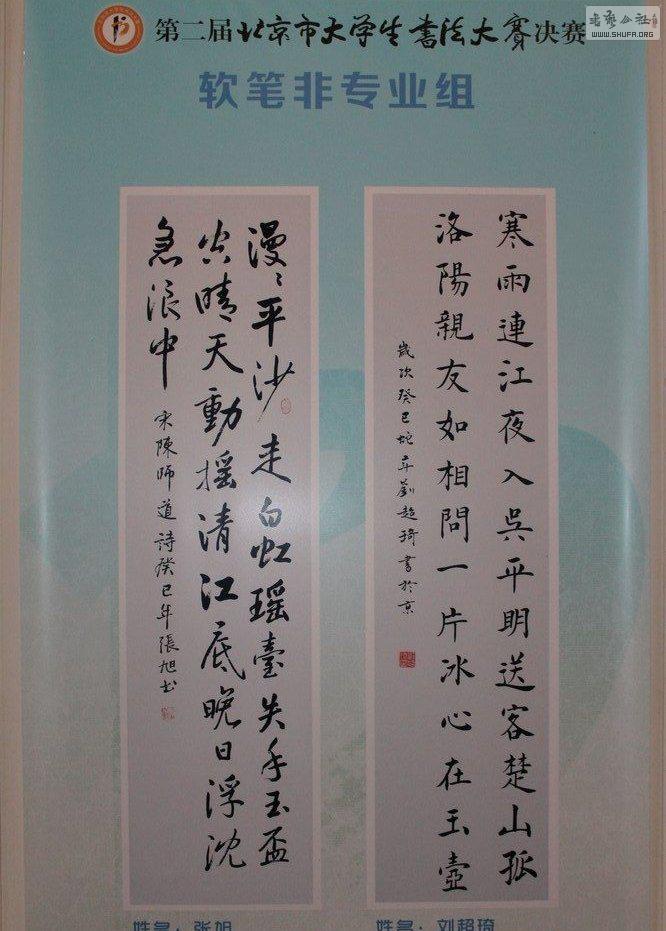 第二届北京市大学生書法大賽决赛
書藝公社
WWW.SHUFA.ORG
软笔非专业组
寒雨連江夜入吳平明送客楚山孤
洛陽親友如相問一片冰心在玉壺
歲次癸巳蛇年劉超琦書於京
漫〻平沙走白虹瑶臺失手玉盃
空晴天動摇清江底晚日浮沈
急浪中
宋陳師道詩癸巳年張旭书
姓名：张旭
姓名：刘超琦